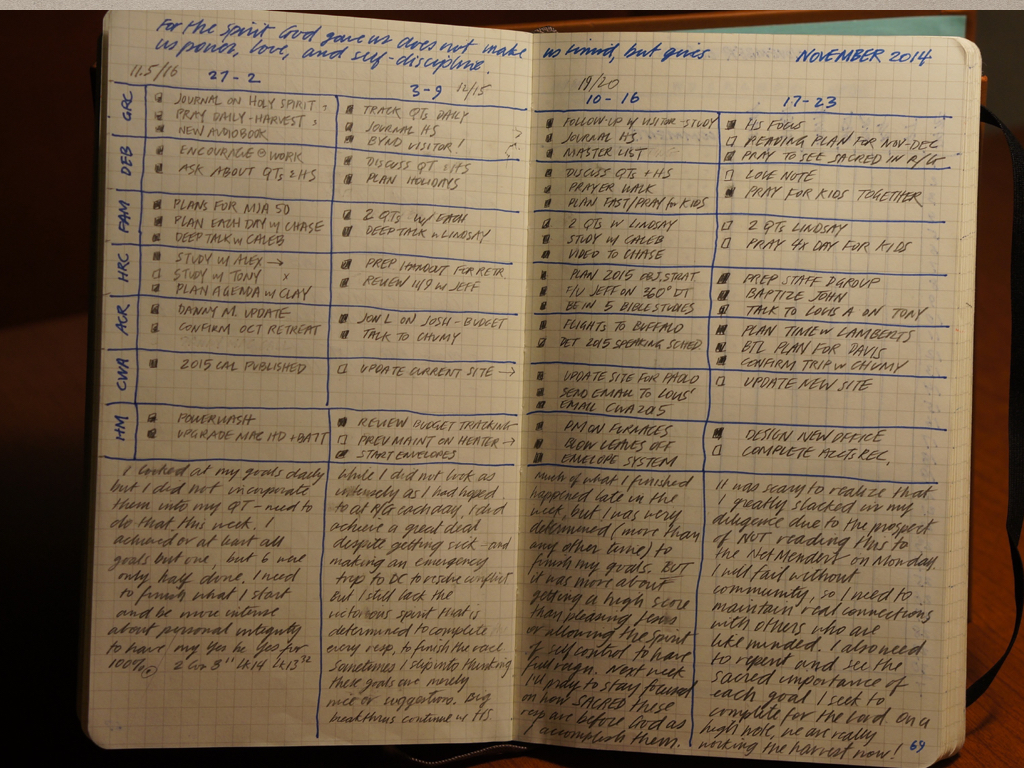 For the spirit God gave us does not make us timid, but gives
us power, love, and self-discipline.
NOVEMBER 2014
11.5/16
27-2
GRC
JOURNAL ON HOLY SPIRIT
PRAY DAILY - HARVEST
NEW AUDIOBOOK
DEB
ENCOURAGE @ WORK
ASK ABOUT QTs & HS
FAM
PLANS FOR MJA 50
PLAN EACH DAY w CHASE
DEEP TALK w CALEB
HRC
STUDY w/ ALEX →
STUDY w/ TONY x
PLAN AGENDA w CLAY
AGR
DANNY M. UPDATE
CONFIRM OCT RETREAT
CWA
2015 CAL PUBLISHED
HM
POWERWASH
UPGRADE MAC HD + BATT
I looked at my goals daily
but I did not incorporate
them into my QT - need to
do that this week. I
achieved or at least all
goals but one, but 6 were
only half done. I need
to finish what I start
and be more intense
about personal integrity
to have my Yes be Yes for
100%
2 Cor 8:11 Lk 14 Lk 13:32
3-9 12/15
TRACK QTs DAILY
JOURNAL HS
BYND VISITOR!
DISCUSS QT & HS
PLAN HOLIDAYS
2 QTs w/ EACH
DEEP TALK w LINDSAY
PREP HANDOUT FOR RETR.
REVIEW 11/9 w JEFF
JON L ON JOSH - BUDGET
TALK TO CHUMY
UPDATE CURRENT SITE →
REVIEW BUDGET TRACKING
PREV MAINT ON HEATER →
START ENVELOPES
While I did not look as
intensely as I had hoped
to at M/G each day, I did
achieve a great deal
despite getting sick and
making an emergency
trip to DC to resolve conflict
but I still lack the
victorious spirit that is
determined to complete
every resp, to finish the race.
Sometimes I slip into thinking
these goals are merely
nice or suggestions. Big
breakthrus continue w HS
19/20
10-16
FOLLOW-UP w VISITOR - STUDY
JOURNAL HS
MASTER LIST
DISCUSS QTs + HS
PRAYER WALK
PLAN FAST/PRAY for KIDS
2 QTs w LINDSAY
STUDY w CALEB
VIDEO TO CHASE
PLAN 2015 OBJ, STRAT.
F/U JEFF ON 360° DT
BE IN 5 BIBLE STUDIES
FLIGHTS TO BUFFALO
DET 2015 SPEAKING SCHED
UPDATE SITE FOR PABLO
SEND EMAIL TO LOUIS'
EMAIL CWA 2015
PM ON FURNACES
BLOW LEAVES OFF
ENVELOPE SYSTEM
Much of what I finished
happened late in the
week, but I was very
determined (more than
any other time) to
finish my goals. BUT
it was more about
getting a high score
than pleasing Jesus
or allowing the Spirit
of self control to have
full reign. Next week
I'll pray to stay focused
on how SACRED these
resp are before God as
I accomplish them.
17-23
HS FOCUS
READING PLAN FOR NOV-DEC
PRAY TO SEE SACRED IN R/G
LOVE NOTE
PRAY FOR KIDS TOGETHER
2 QTs LINDSAY
PRAY 4x DAY FOR KIDS
PREP STAFF DGROUP
BAPTIZE JOHN
TALK TO LOUIS A ON TONY
PLAN TIME w LAMBERTS
BTL PLAN FOR DAVIS
CONFIRM TRIP w CHUMY
UPDATE NEW SITE
DESIGN NEW OFFICE
COMPLETE ACCTS REC.
It was scary to realize that
I greatly slacked in my
diligence due to the prospect
of NOT reading this to
the Net Menders on Monday.
I will fail without
community, so I need to
maintain real connections
with others who are
like minded. I also need
to repent and see the
sacred importance of
each goal I seek to
complete for the Lord. On a
high note, we are really
working the harvest now!
69